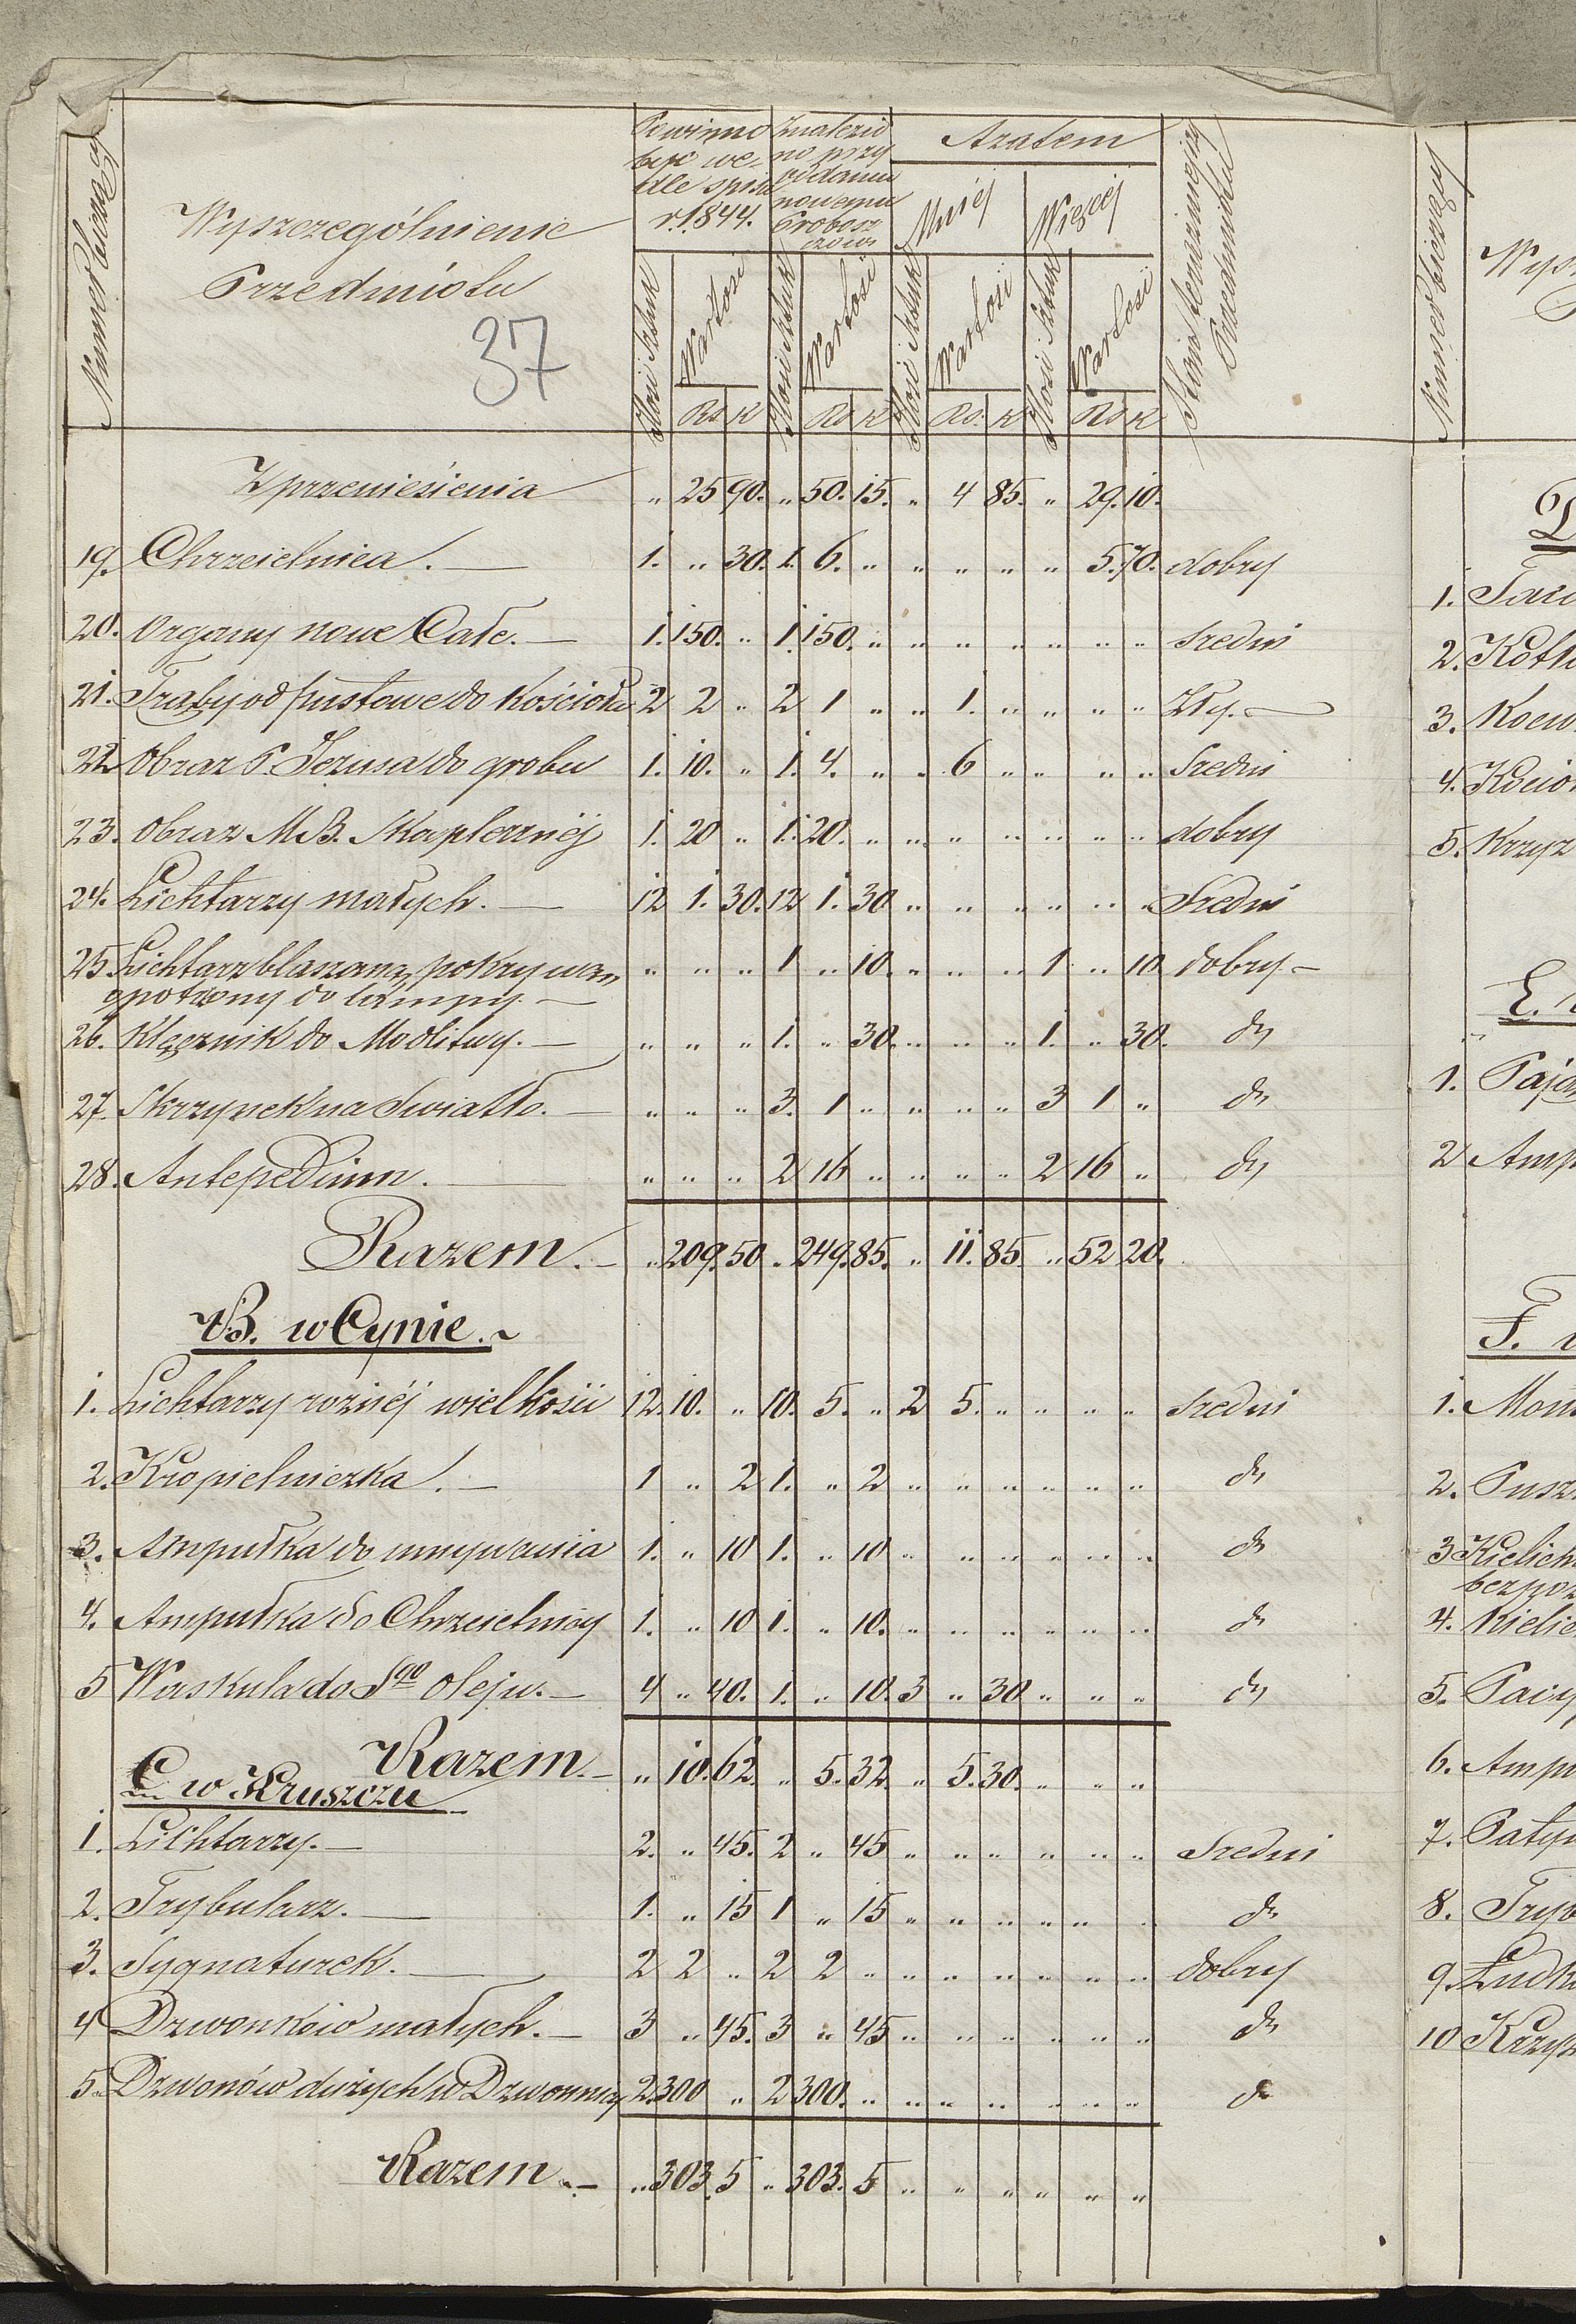 Numer bieżący
Wyszczególnienie
Przedmiotu
37
Powinno
być we-
dle spisu
r. 1844.
Znalezio
no przy
oddaniu
nowemu
Probosz
czowi
Azatem
Mniéj
Więcéj
Ilość Sztuk
Wartość
Rs K
Ilość Sztuk
Wartość
Rs K
Ilość Sztuk
Wartość
Rs. K
Ilość Sztuk
Wartość
Rs K
Stan teraźniejszy
Przedmiotu
Z przeniesienia „ 25 90. „ 50. 15. „ 4 85. „ 29. 10.
19. Chrzcielnica. — 1. „ 30. 1. 6. „ „ „ „ „ 5. 70. dobry
20. Organy nowe Całe. — 1. 150. „ 1. 150. „ „ „ „ „ „ „ średni
21. Traby odpustowe do Kościoła 2 2 „ 2 1 „ „ 1. „ „ „ „ Zły. —
22 Obraz P. Jezusa do grobu 1. 10. „ 1. 4. „ „ 6 „ „ „ „ Średni
23. Obraz M.B. Skaplerznéj 1. 20 „ 1. 20. „ „ „ „ „ „ „ dobry
24. Lichtarzy małych. — 12 1. 30. 12 1. 30 „ „ „ „ „ „ Średni
25 Lichtarz blaszany pokrywan
„ „ „ 1 „ 10. „ „ „ 1 „ 10 dobry —
do lampy. —
26. Klęcznik do Modlitwy. — „ „ „ 1. „ 30. „ „ „ 1. „ 30. do
27. Skrzynek na Swiatło. — „ „ „ 3. 1 „ „ „ „ 3 1 „ do
28. Antepedium. — „ „ „ 2 16 „ „ „ „ 2 16 „ do
Razem. — „ 209. 50 „ 249. 85. „ 11. 85 „ 52 20.
B. w Cynie. ~
1. Lichtarzy roznéj wielkości 12. 10. „ 10. 5. „ 2 5. „ „ „ „ średni
2. Kropielniczka. — 1 „ 2 1. „ 2 „ „ „ „ „ „ do
3. Ampułka do umywania 1. „ 10 1. „ 10 „ „ „ „ „ „ do
4. Ampułka do Chrzcielnicy 1. „ 10 1. „ 10. „ „ „ „ „ „ do
5 Waskula do Sgo oleju. — 4 „ 40. 1. „ 10. 3 „ 30 „ „ „ do
Razem. — „ 10. 62. „ 5. 32. „ 5. 30. „ „ „
C w Kruszczu
1. Lichtarzy. — 2. „ 45. 2 „ 45 „ „ „ „ „ „ Średni
2. Trybularz. — 1. „ 15 1 „ 15 „ „ „ „ „ „ do
3. Sygnaturek. — 2 2 „ 2 2 „ „ „ „ „ „ „ dobry
4 Dzwonków małych. — 3 „ 45. 3 „ 45 „ „ „ „ „ „ do
5. Dzwonów dużych w Dzwonnicy 2. 300 „ 2 300. „ „ „ „ „ „ „ do
Razem. — „ 303. 5 „ 303. 5 „ „ „ „ „ „
Numer bieżący
1.
2.
3.
4.
5. Krzyż
E.
1.
2
F.
1.
2.
3 Kielich
4.
5.
6.
7.
8.
9.
10